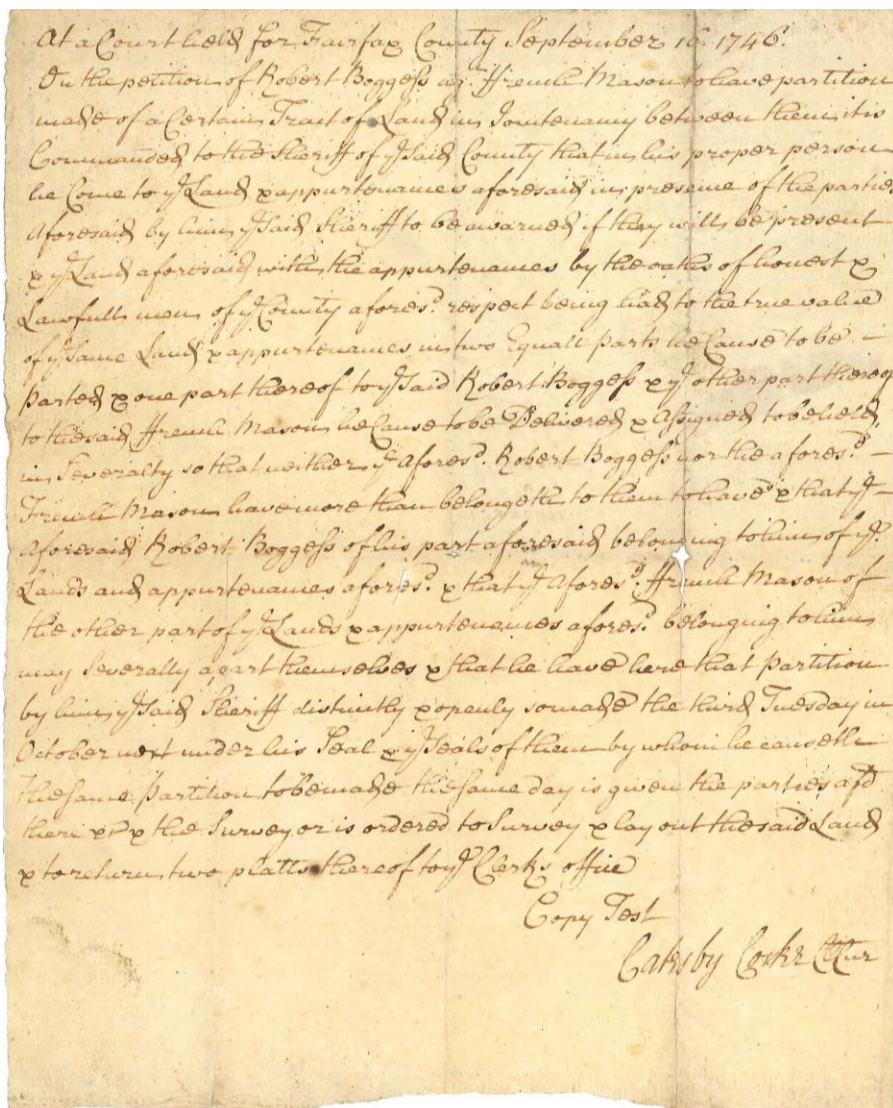 At a Court held for Fairfax County September 16: 1746:
On the petition of Robert Boggess and ffrench Mason to have partition
made of a Certain Tract of Land in Jointenancy between them it is
Commanded to the Sheriff of yͤ Said County that in his proper person
he Come to yͤ Land & appurtenances aforesaid in presence of the parties
Aforesaid by him yͤ Said Sheriff to be awarned if they will be present
& yͤ Land aforesaid with the appurtenances by the oaths of honest &
Lawfull men of yͤ County aforesᵈ. respect being had to the true value
of yͤ Same Land & appurtenances in two Equall parts he Cause to be –
Parted & one part thereof to yͤ Said Robert Boggess & yͤ other part thereof
to the said ffrench Mason he Cause to be Delivered & Assigned to be held
in Severalty so that neither yͤ Aforesᵈ. Robert Boggess nor the aforesᵈ. –
French Mason have more than belongeth to them to have & that yͤ –
Aforesaid Robert Boggess of his part aforesaid belonging to him of yͤ.
Lands and appurtenances aforesᵈ. & that yͤ Aforesᵈ. ffrench Mason of
the other part of yͤ Lands & appurtenances aforesᵈ. belonging to him
may Severally apart themselves & that he have here that Partition
by him yͤ Said Sheriff distinctly & openly so made the third Tuesday in
October next under his Seal & yͤ Seals of them by whom he causeth
the Same Partition to be made the Same day is given the parties afᵈ
there &ᶜ & the Surveyor is ordered to Survey & lay out the said Land
& to return two platts thereof to yͤ Clerks office
Copy Test
Catesby Cocke ClCur